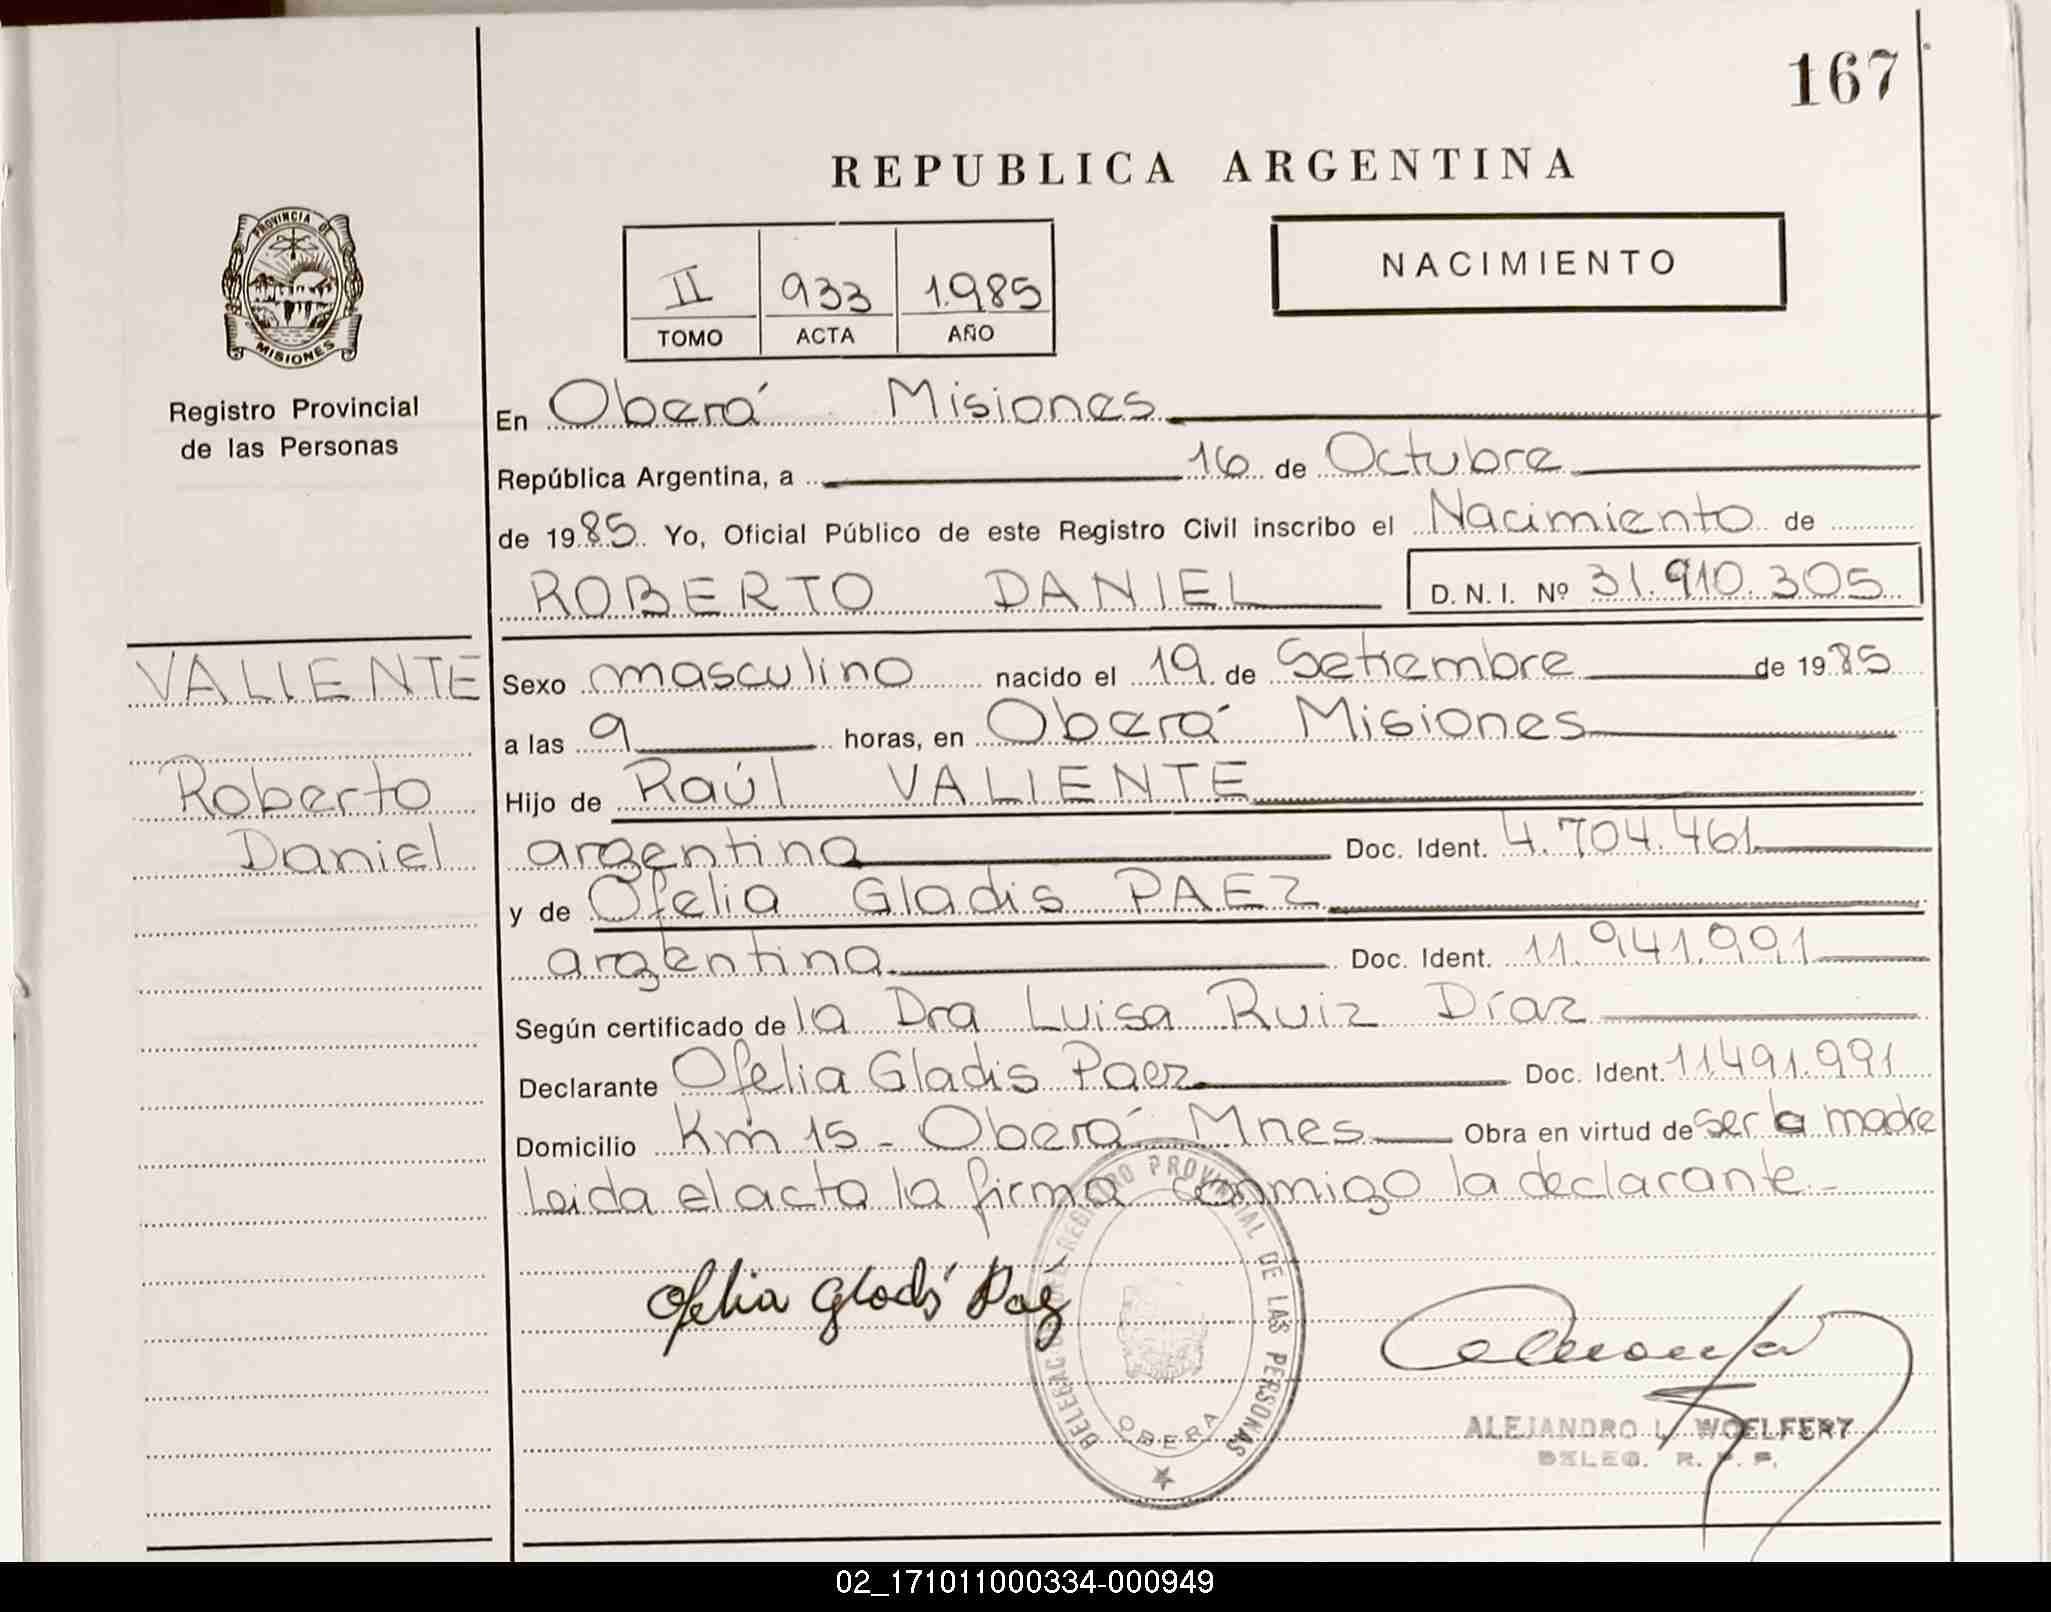 167
REPUBLICA ARGENTINA
PROVINCIA DE
MISIONES
Registro Provincial
de las Personas
II 933 1.985
TOMO ACTA AÑO
NACIMIENTO
En Oberá Misiones
República Argentina, a 16 de Octubre
de 1985 Yo, Oficial Público de este Registro Civil inscribo el Nacimiento de
ROBERTO DANIEL D. N. I. Nº 31.910.305
VALIENTE
Roberto
Daniel
Sexo masculino nacido el 19 de Setiembre de 1985
a las 9 horas, en Oberá Misiones
Hijo de Raúl VALIENTE
argentina Doc. Ident. 4.704.461
y de Ofelia Gladis PAEZ
argentina Doc. Ident. 11.941.991
Según certificado de la Dra Luisa Ruiz Díaz
Declarante Ofelia Gladis Paez Doc. Ident. 11491.991
Domicilio Km 15 - Oberá Mnes Obra en virtud de ser la madre
Leida el acta la firma conmigo la declarante -
Ofelia Gladis Paez
REGISTRO PROVINCIAL DE LAS PERSONAS
OBERA
ALEJANDRO L. WOELFERT
DELEG. R. P. P.
02_171011000334-000949